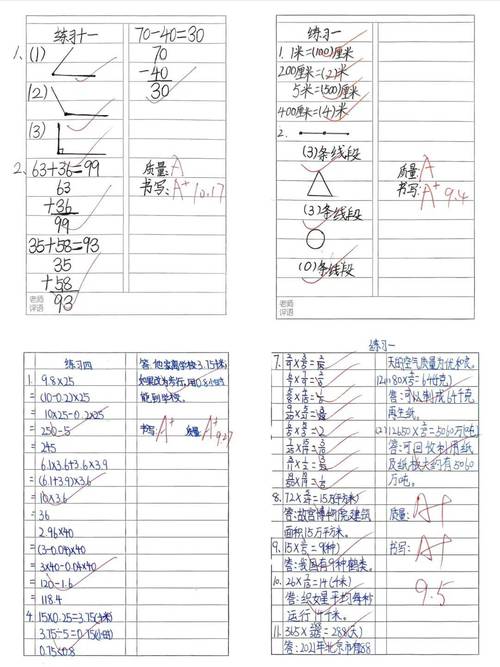 练习十一
1、(1)
(2)
(3)
2、63+36=99
63
+36
99
35+58=93
35
+58
93
70-40=30
70
-40
30
质量:A
书写:A+ 10.17
老师
评语
练习一
1. 1米=(100)厘米
200厘米=(2)米
5米=(500)厘米
400厘米=(4)米
2.
(3)条线段
(3)条线段
(0)条线段
质量:A
书写:A+ 9.4
老师
评语
练习四
1. 9.8×25
=(10-0.2)×25
=10×25-0.2×25
=250-5
=245
6.1×3.6+3.6×3.9
=(6.1+3.9)×3.6
=10×3.6
=36
2.96×40
=(3-0.04)×40
=3×40-0.04×40
=120-1.6
=118.4
4. 15×0.25=3.75(千米)
3.75÷5=0.75(小时)
0.75<0.8
答:他家离学校3.75千米,
如果改为步行,用0.8小时
能到学校。
书写:A+ 质量:A+ 9.27
练习一
7.
8.
答:故宫博物院建筑
面积15万平方米。
9.
答:我国有9种鹤类。
10.
答:织女星平均每秒
运行14千米。
11.
答:2021年北京市有288
天的空气质量为优和良。
答:可以制成64千克
再生纸。
答:可回收利用纸
及纸板大约有5060
万吨。
质量:A+
书写:A+
9.5